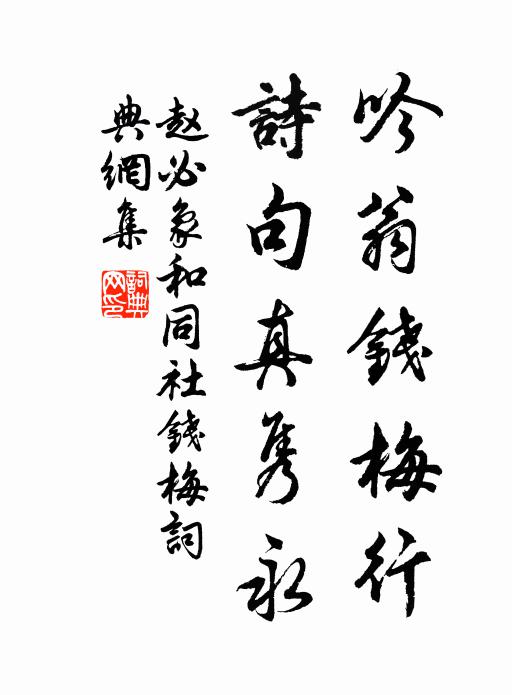 吟翁錢梅行
詩句真雋永
赵必象和同社錢梅詞
典網集
詞典网印